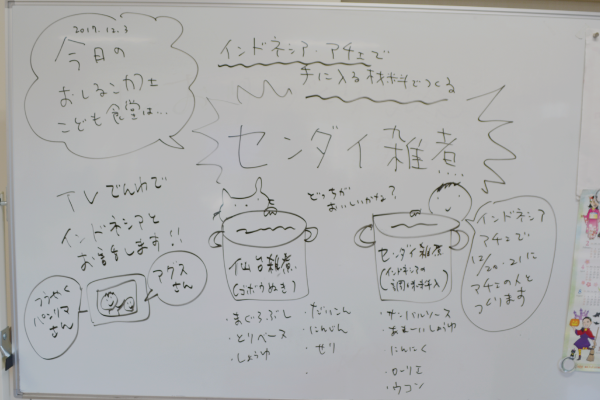 2017.12.3
今日の
おしるこカフェ
こども食堂は…
インドネシア・アチェで
手に入る材料でつくる
センダイ雑煮
TVでんわで
インドネシアと
お話します!!
アグス
さん
さん
どっちが
おいしいかな?
仙台雑煮
(ゴボウぬき)
・まぐろぶし
・とりベース
・しょうゆ
・だいこん
・にんじん
・せり
センダイ雑煮
(インドネシアの
調味料入)
・サンバルソース
・あまーいしょうゆ
・にんにく
・ローリエ
・ウコン
インドネシア
アチェで
12/20・21に
アチェの人と
つくります